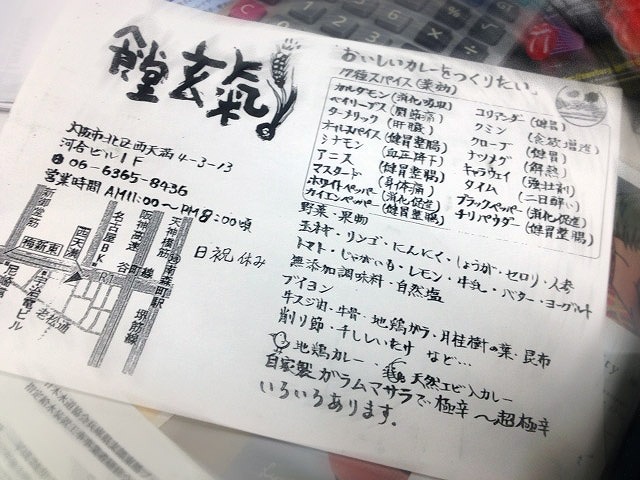 食堂玄氣
大阪市北区西天満4-3-13
河合ビル1F
06-6365-8436
営業時間 AM11:00〜PM8:00頃
日祝休み
新御堂筋
梅新東
西天満
名古屋BK
阪神高速
谷町線
天神橋筋
南森町駅
堺筋線
老松通
おいしいカレーをつくりたい。
17種スパイス(薬効)
カルダモン(消化吸収)
ベイリーブス(関節痛)
ターメリック(肝臓)
オールスパイス(健胃整腸)
シナモン(血圧降下)
アニス(健胃整腸)
マスタード(身体痛)
ホワイトペッパー(消化促進)
カイエンペッパー(健胃整腸)
コリアンダー(健胃)
クミン(食欲増進)
クローブ(健胃)
ナツメグ(解熱)
キャラウェイ(強壮剤)
タイム(二日酔い)
ブラックペッパー(消化促進)
チリパウダー(健胃整腸)
野菜・果物
玉ネギ・リンゴ・にんにく・しょうが・セロリ・人参
トマト・じゃがいも・レモン・牛乳・バター・ヨーグルト
無添加調味料・自然塩
ブイヨン
牛スジ肉・牛骨・地鶏ガラ・月桂樹の葉・昆布
削り節・干ししいたけ など…
地鶏カレー・天然エビ入カレー
自家製ガラムマサラで極辛〜超極辛
いろいろあります。